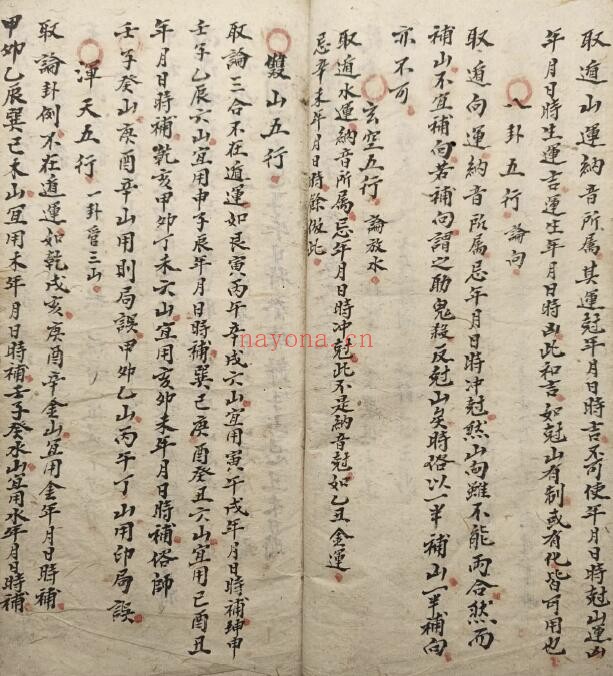 取遁山運納音所属其運尅年月日時吉不可使年月日時尅山運山
年月日時生運吉運生年月日時凶比和吉如尅山有制或有化皆可用也
八卦五行 論向
取遁向運納音所属忌年月日時冲尅然山向雖不能両合然而
補山不宜補向若補向謂之助鬼殺反尅山矣時俗以一半補山一半補向
亦不可
玄空五行 論放水
取遁水運納音所属忌年月日時冲尅此不是納音尅如乙丑金運
忌辛未年月日時餘倣此
雙山五行
取論三合不在遁運如艮寅丙午辛戌六山宜用寅午戌年月日時補绅申
壬子乙辰六山宜用申子辰年月日時補巽巳庚酉癸丑六山宜用巳酉丑
年月日時補乾亥甲卯丁未六山宜用亥卯未年月日時補俗師
壬子癸山庚酉辛山用則局誤甲卯乙山丙午丁山用印局誤
渾天五行 一卦管三山
取論卦例不在遁運如乾戌亥庚酉辛金山宜用金年月日時補
甲卯乙辰巽巳木山宜用木年月日時補壬子癸水山宜用水年月日時補
nayona.cn